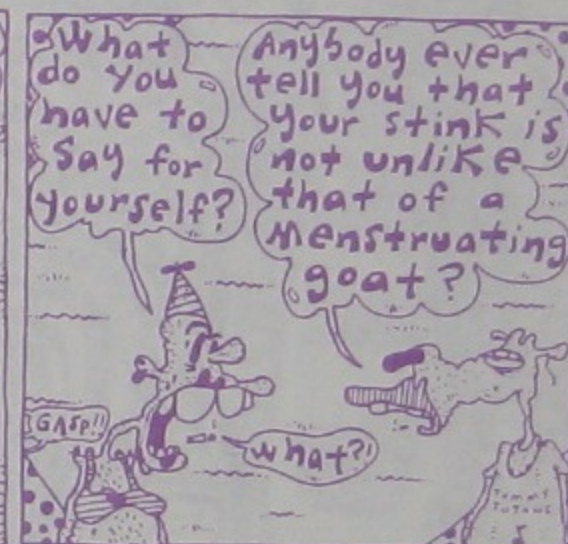 What
do you
have to
say for
yourself?
Anybody ever
tell you that
your stink is
not unlike
that of a
menstruating
goat?
GASP!!
What?!
TOMMY